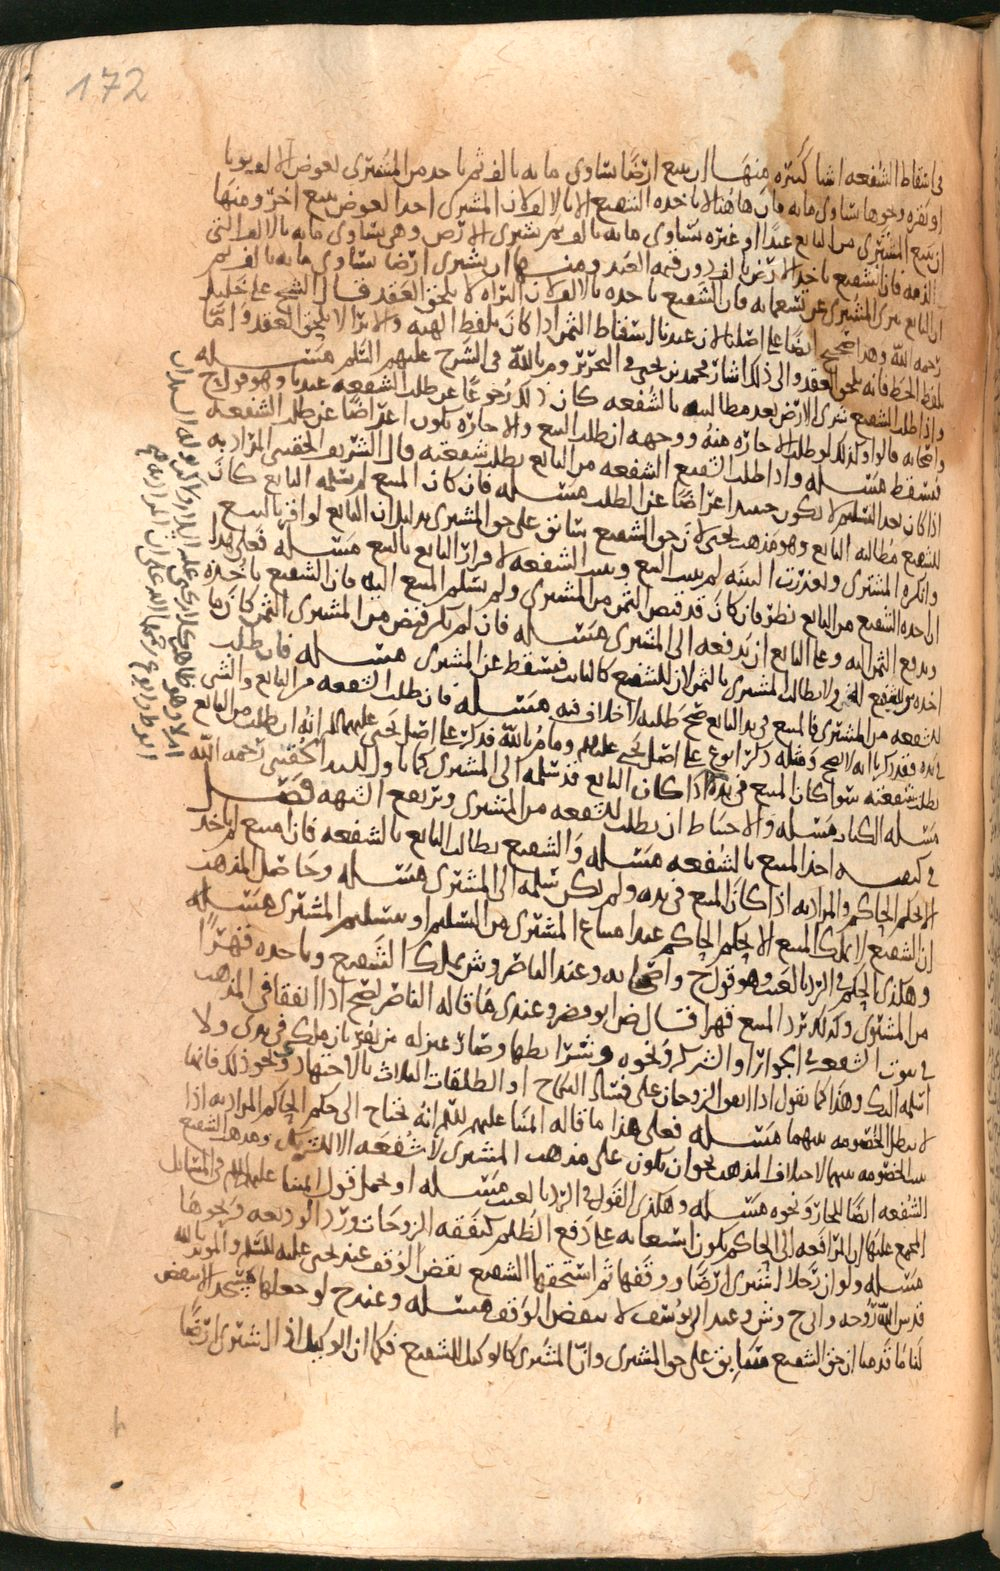 172
في اسقاط الشفعه اشيا كثيره منها ان يبيع ارضا تساوي مايه بالف ثم ياخذ من المشتري بعوض الالف ثوبا
او بقره ونحوها تساوي مايه فان هاهنا لا ياخذه الشفيع الا بالالف لان المشتري اخذ العوض ببيع اخر ومنها
ان يبيع المشتري من البايع عبدا او غيره تساوي مايه بالف ثم يشتري الارض وهي تساوي مايه بالالف التي
في الذمه فان الشفيع ياخذ الارض بالف دون قيمه العبد ومنها ان يشتري ارضا تساوي مايه بالف ثم
ان البايع يبري المشتري عن تسعمايه فان الشفيع ياخذه بالالف لان البراه لا يلحق العقد قال الشيخ علي خليل
رحمه الله وهذا صحيح ايضا على اصلنا لان عندنا ان اسقاط الثمن اذا كان بلفظ الهبه والابرا لا يلحق العقد واما
بلفظ الحط فانه يلحق العقد والى ذلك اشار محمد بن يحيى في التحرير وم بالله في الشرح عليهم السلم مسله
واذا طلب الشفيع شرى الارض بعد مطالبته بالشفعه كان ذلك رجوعا عن طلب الشفعه عندنا وهو قول ح
واصحابه قالوا وكذلك لو طلب الاجازه منه ووجهه ان طلب البيع والاجازه يكون اعراضا عن طلب الشفعه
فتسقط مسله واذا طلب الشفيع الشفعه من البايع بطلت شفعته قال الشريف الحقيني المراد به
اذا كان بعد التسليم لا يكون حينئذ اعراضا عن الطلب مسله فان كان المبيع لم يسلمه البايع كان
للشفيع مطالبه البايع وهو مذهب يحيى لان حق الشفيع سابق على حق المشتري بدليل ان البايع لو اقر بالبيع
وانكره المشتري وتعذرت البينه لم يثبت البيع وثبت الشفعه لاقرار البايع بالبيع مسله فعلى هذا
ان اخذه الشفيع من البايع نظر فان كان قد قبض الثمن من المشتري ولم يسلم المبيع اليه فان الشفيع ياخذه
ويدفع الثمن اليه وعلى البايع ان يدفعه الى المشتري مسله فان لم يكن قبض من المشتري الثمن كان ما
اخذه من الشفيع له ولا يطالب المشتري بالثمن لان الشفيع كالنايب فيسقط عن المشتري مسله فان طلب
الشفعه من المشتري والمبيع في يد البايع صح طلبه لا خلاف فيه مسله فان طلب الشفعه من البايع والشي
في يده فقد ذكرنا انه لا يصح ومثله ذكر ابو ع على اصل يحيى عليلم وما م بالله فذكر على اصل يحيى عليه السلم انه ان طلب من البايع
بطلت شفعته سوا كان المبيع في يده اذا كان البايع قد سلمه الى المشتري كما تاوله السيد الحقيني رحمه الله
مسله الكتاب مسله والاحتياط ان يطلب الشفعه من المشتري ويرتفع الشبهه فصل
في كيفيه اخذ المبيع بالشفعه مسله والشفيع يطالب البايع بالشفعه فان امتنع لم ياخذ
الا بحكم الحاكم والمراد به اذا كان المبيع في يده ولم يكن سلمه الى المشتري مسله وحاصل المذهب
ان الشفيع لا يملك المبيع الا بحكم الحاكم عند امتناع المشتري من التسليم او بتسليم المشتري مسله
وهكذى الحكم في الرد بالعيب وهو قول ح واصحابه وعند الناصر وش يملك الشفيع وياخذه قهرا
من المشتري وكذلك يرد المبيع قهرا قال ض ابو مضر وعندي ما قاله الناصر يصح اذا اتفقا في المذهب
في ثبوت الشفعه في الجوار او الشرب ونحوه وشرايطها وصار بمنزله من يقر بان ملك في يدي ولا
اسلمه اليك وهذا كما نقول اذا اتفق الزوجان على فساد النكاح او الطلقات الثلاث بالاجتهاد ونحو ذلك فانها
لا تبطل الخصومه بينهما مسله فعلى هذا ما قاله ائمتنا عليهم السلم انه يحتاج الى حكم الحاكم المراد به اذا
ثبت الخصومه بينهما لاختلاف المذهب نحو ان يكون على مذهب المشتري لا شفعه الا للشريك ومذهب الشفيع
الشفعه ايضا للجار ونحوه مسله وهكذى القول في الرد بالعيب مسله او يحمل قول ايمتنا عليهم السلم في المسايل
المجمع عليها ان المرافعه الى الحاكم يكون استعانه على دفع الظلم كنفقه الزوجات ورد الوديعه ونحوها
مسله ولو ان رجلا اشترى ارضا ووقفها ثم استحقها الشفيع نقض الوقف عند يحيى عليه السلم والمويد بالله
قدس الله روحه وابي ح وش وعند ابي يوسف لا ينقض الوقف مسله وعند ح لو جعلها مسجدا لا ينقض
لنا ما قدمنا ان حق الشفيع سابق على حق المشتري وان المشتري كالوكيل للشفيع فكما ان الوكيل اذا اشترى ارضا